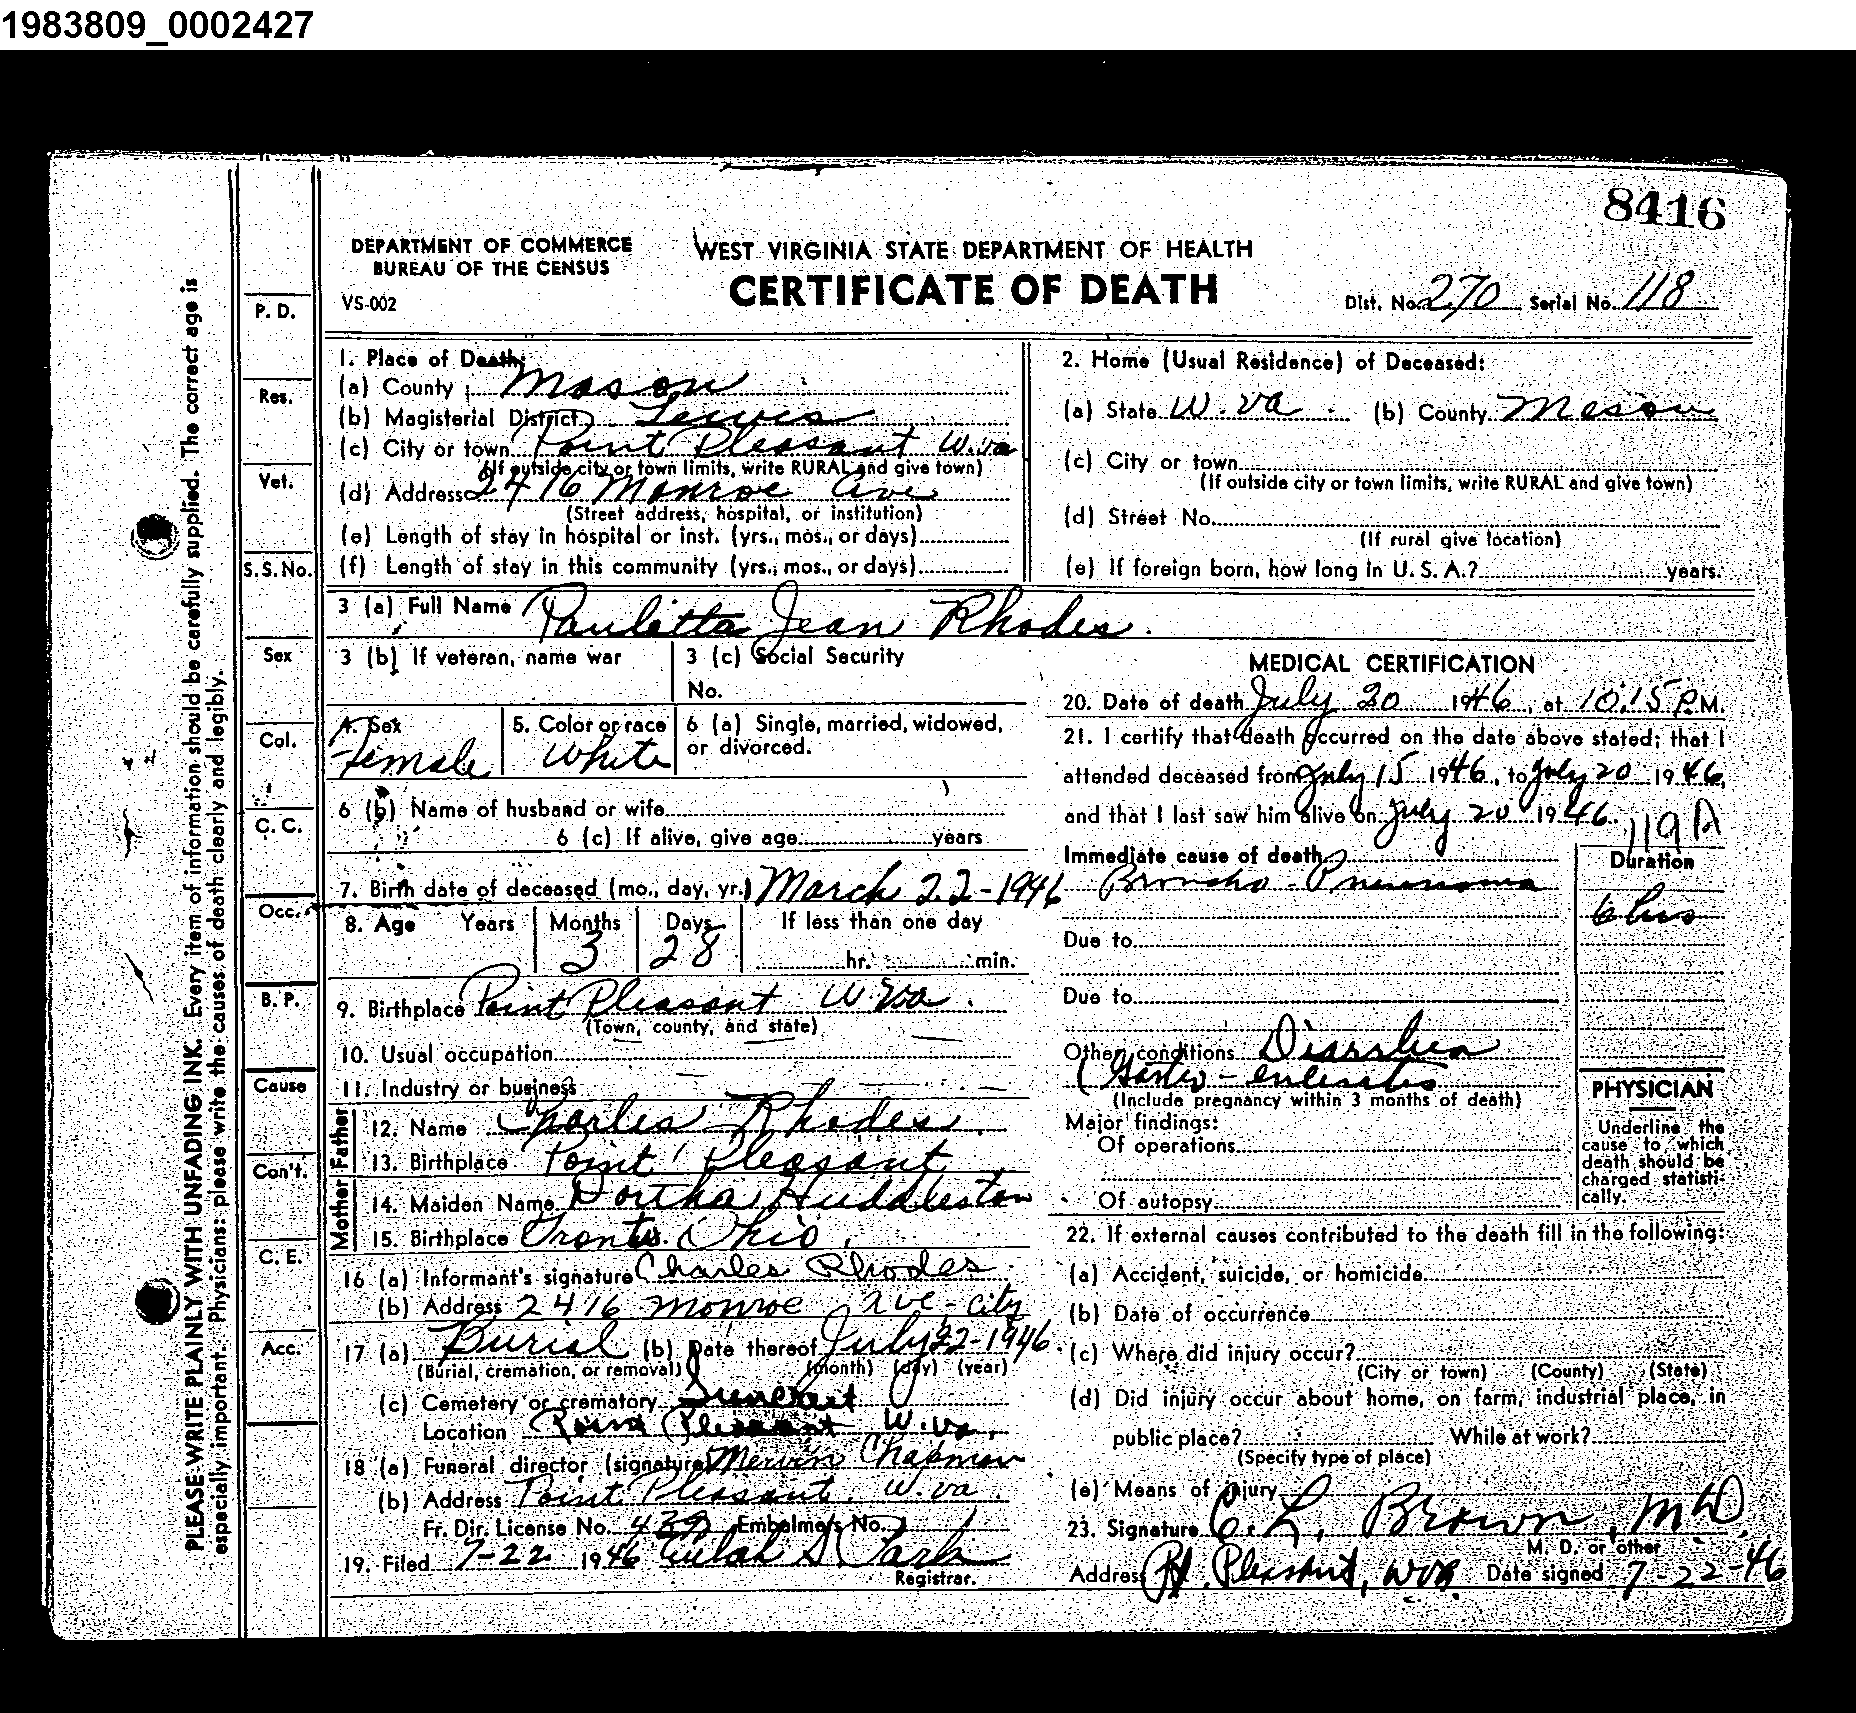 1983809_0002427
8416
DEPARTMENT OF COMMERCE
BUREAU OF THE CENSUS
VS-002
WEST VIRGINIA STATE DEPARTMENT OF HEALTH
CERTIFICATE OF DEATH
Dist. No. 270 Serial No. 118
PLEASE WRITE PLAINLY WITH UNFADING INK. Every item of information should be carefully supplied. The correct age is
especially important. Physicians: please write the causes of death clearly and legibly.
P. D.
Res.
Vet.
S. S. No.
Sex
Col.
C. C.
Occ.
B. P.
Cause
Con't.
C. E.
Acc.
1. Place of Death:
(a) County Mason
(b) Magisterial District Lewis
(c) City or town Point Pleasant W.va
(If outside city or town limits, write RURAL and give town)
(d) Address 2416 Monroe Ave
(Street address, hospital, or institution)
(e) Length of stay in hospital or inst. (yrs., mos., or days)
(f) Length of stay in this community (yrs., mos., or days)
2. Home (Usual Residence) of Deceased:
(a) State W.va. (b) County Mason
(c) City or town
(If outside city or town limits, write RURAL and give town)
(d) Street No.
(If rural give location)
(e) If foreign born, how long in U. S. A.? years.
3 (a) Full Name Pauletta Jean Rhodes.
3 (b) If veteran, name war
3 (c) Social Security
No.
4. Sex
Female
5. Color or race
White
6 (a) Single, married, widowed,
or divorced.
6 (b) Name of husband or wife
6 (c) If alive, give age years
7. Birth date of deceased (mo., day, yr.) March 22-1946
8. Age Years Months Days If less than one day
3 28 hr. min.
9. Birthplace Point Pleasant W.Va.
(Town, county, and state)
10. Usual occupation
11. Industry or business
Father
12. Name Charles Rhodes.
13. Birthplace Point Pleasant
Mother
14. Maiden Name Dortha Huddleston
15. Birthplace Ohio.
16 (a) Informant's signature Charles Rhodes
(b) Address 2416 Monroe Ave - City
17 (a) Burial (b) Date thereof July 22-1946
(Burial, cremation, or removal) (month) (day) (year)
(c) Cemetery or crematory Suncrest
Location Point Pleasant W.va.
18 (a) Funeral director (signature) Mervin Chapman
(b) Address Point Pleasant. W.va.
Fr. Dir. License No. 439 Embalmer's No.
19. Filed 7-22 1946 Eulah S Park
Registrar.
MEDICAL CERTIFICATION
20. Date of death July 20 1946, at 10:15 P.M.
21. I certify that death occurred on the date above stated; that I
attended deceased from July 15 1946, to July 20 1946,
and that I last saw him alive on July 20 1946.
119 A
Immediate cause of death
Broncho-Pneumonia
Duration
6 hrs
Due to
Due to
Other conditions Diarrhea
(Gastro-enteritis
(Include pregnancy within 3 months of death)
Major findings:
Of operations
Of autopsy
PHYSICIAN
Underline the
cause to which
death should be
charged statisti-
cally.
22. If external causes contributed to the death fill in the following:
(a) Accident, suicide, or homicide
(b) Date of occurrence
(c) Where did injury occur?
(City or town) (County) (State)
(d) Did injury occur about home, on farm, industrial place, in
public place? While at work?
(Specify type of place)
(e) Means of injury
23. Signature C. L. Brown, M.D.
M. D. or other
Address Pt. Pleasant, WVa. Date signed 7-22-46